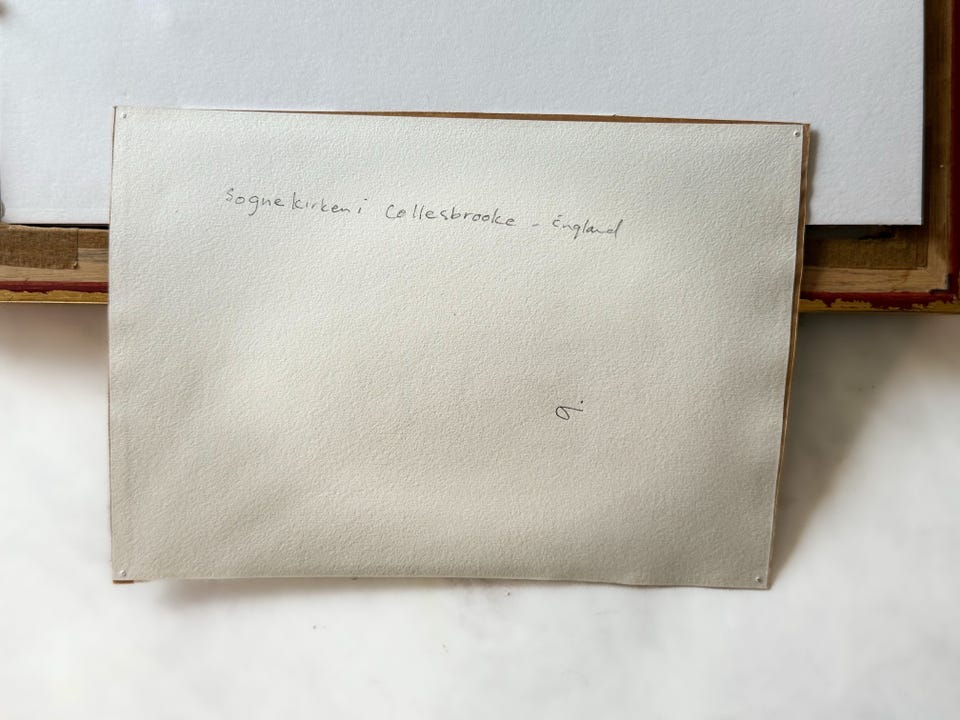 Sognekirken i Collesbrooke - England
9.